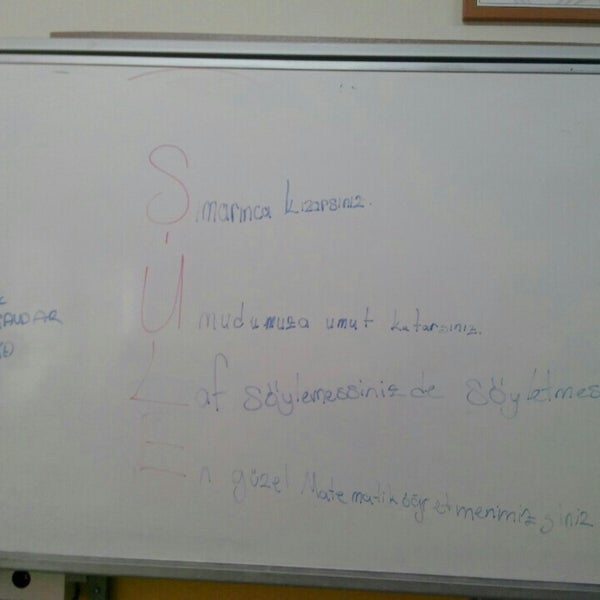 Şımarınca kızarsınız.
Umudumuza umut katarsınız.
Laf söylemessiniz de söyletmes
En güzel Matematik öğretmenimizsiniz